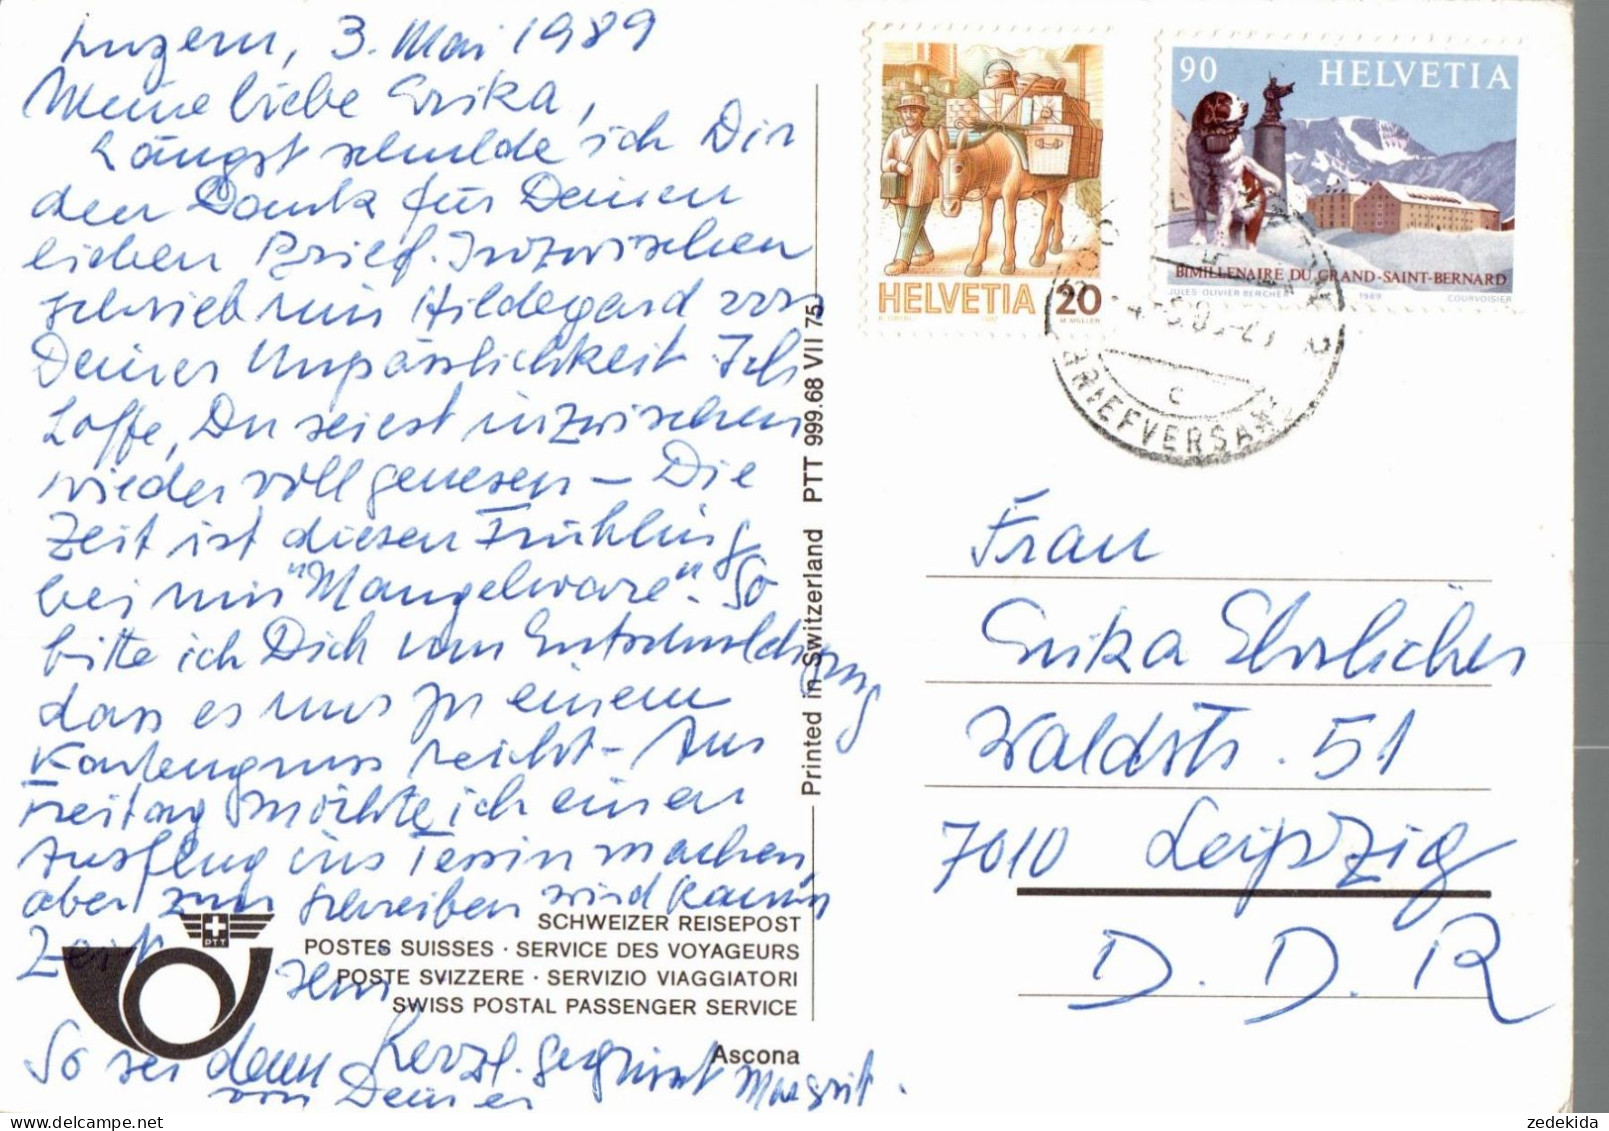 Luzern, 3. Mai 1989
Meine liebe Erika,
Längst schulde ich Dir
den Dank für Deinen
lieben Brief. Inzwischen
schrieb mir Hildegard von
Deiner Unpässlichkeit Ich
hoffe, Du seiest inzwischen
wieder voll genesen – Die
Zeit ist diesen Frühling
bei mir "Mangelware". So
bitte ich Dich um Entschuldigung
dass es nur zu einem
Kartengruss reicht – Am
Freitag möchte ich einen
Ausflug ins Tessin machen,
aber zum schreiben wird kaum
Zeit sein
So sei denn herzl. gegrüsst
von Deiner Margrit.
SCHWEIZER REISEPOST
POSTES SUISSES · SERVICE DES VOYAGEURS
POSTE SVIZZERE · SERVIZIO VIAGGIATORI
SWISS POSTAL PASSENGER SERVICE
PTT
Ascona
Printed in Switzerland PTT 999.68 VII 75
HELVETIA 20
M. MÜLLER
90 HELVETIA
BIMILLENAIRE DU GRAND-SAINT-BERNARD
JULES-OLIVIER BERCHER 1989 COURVOISIER
BRIEFVERSAND
c
Frau
Erika Ehrlicher
Waldstr. 51
7010 Leipzig
D. D. R
zedekida